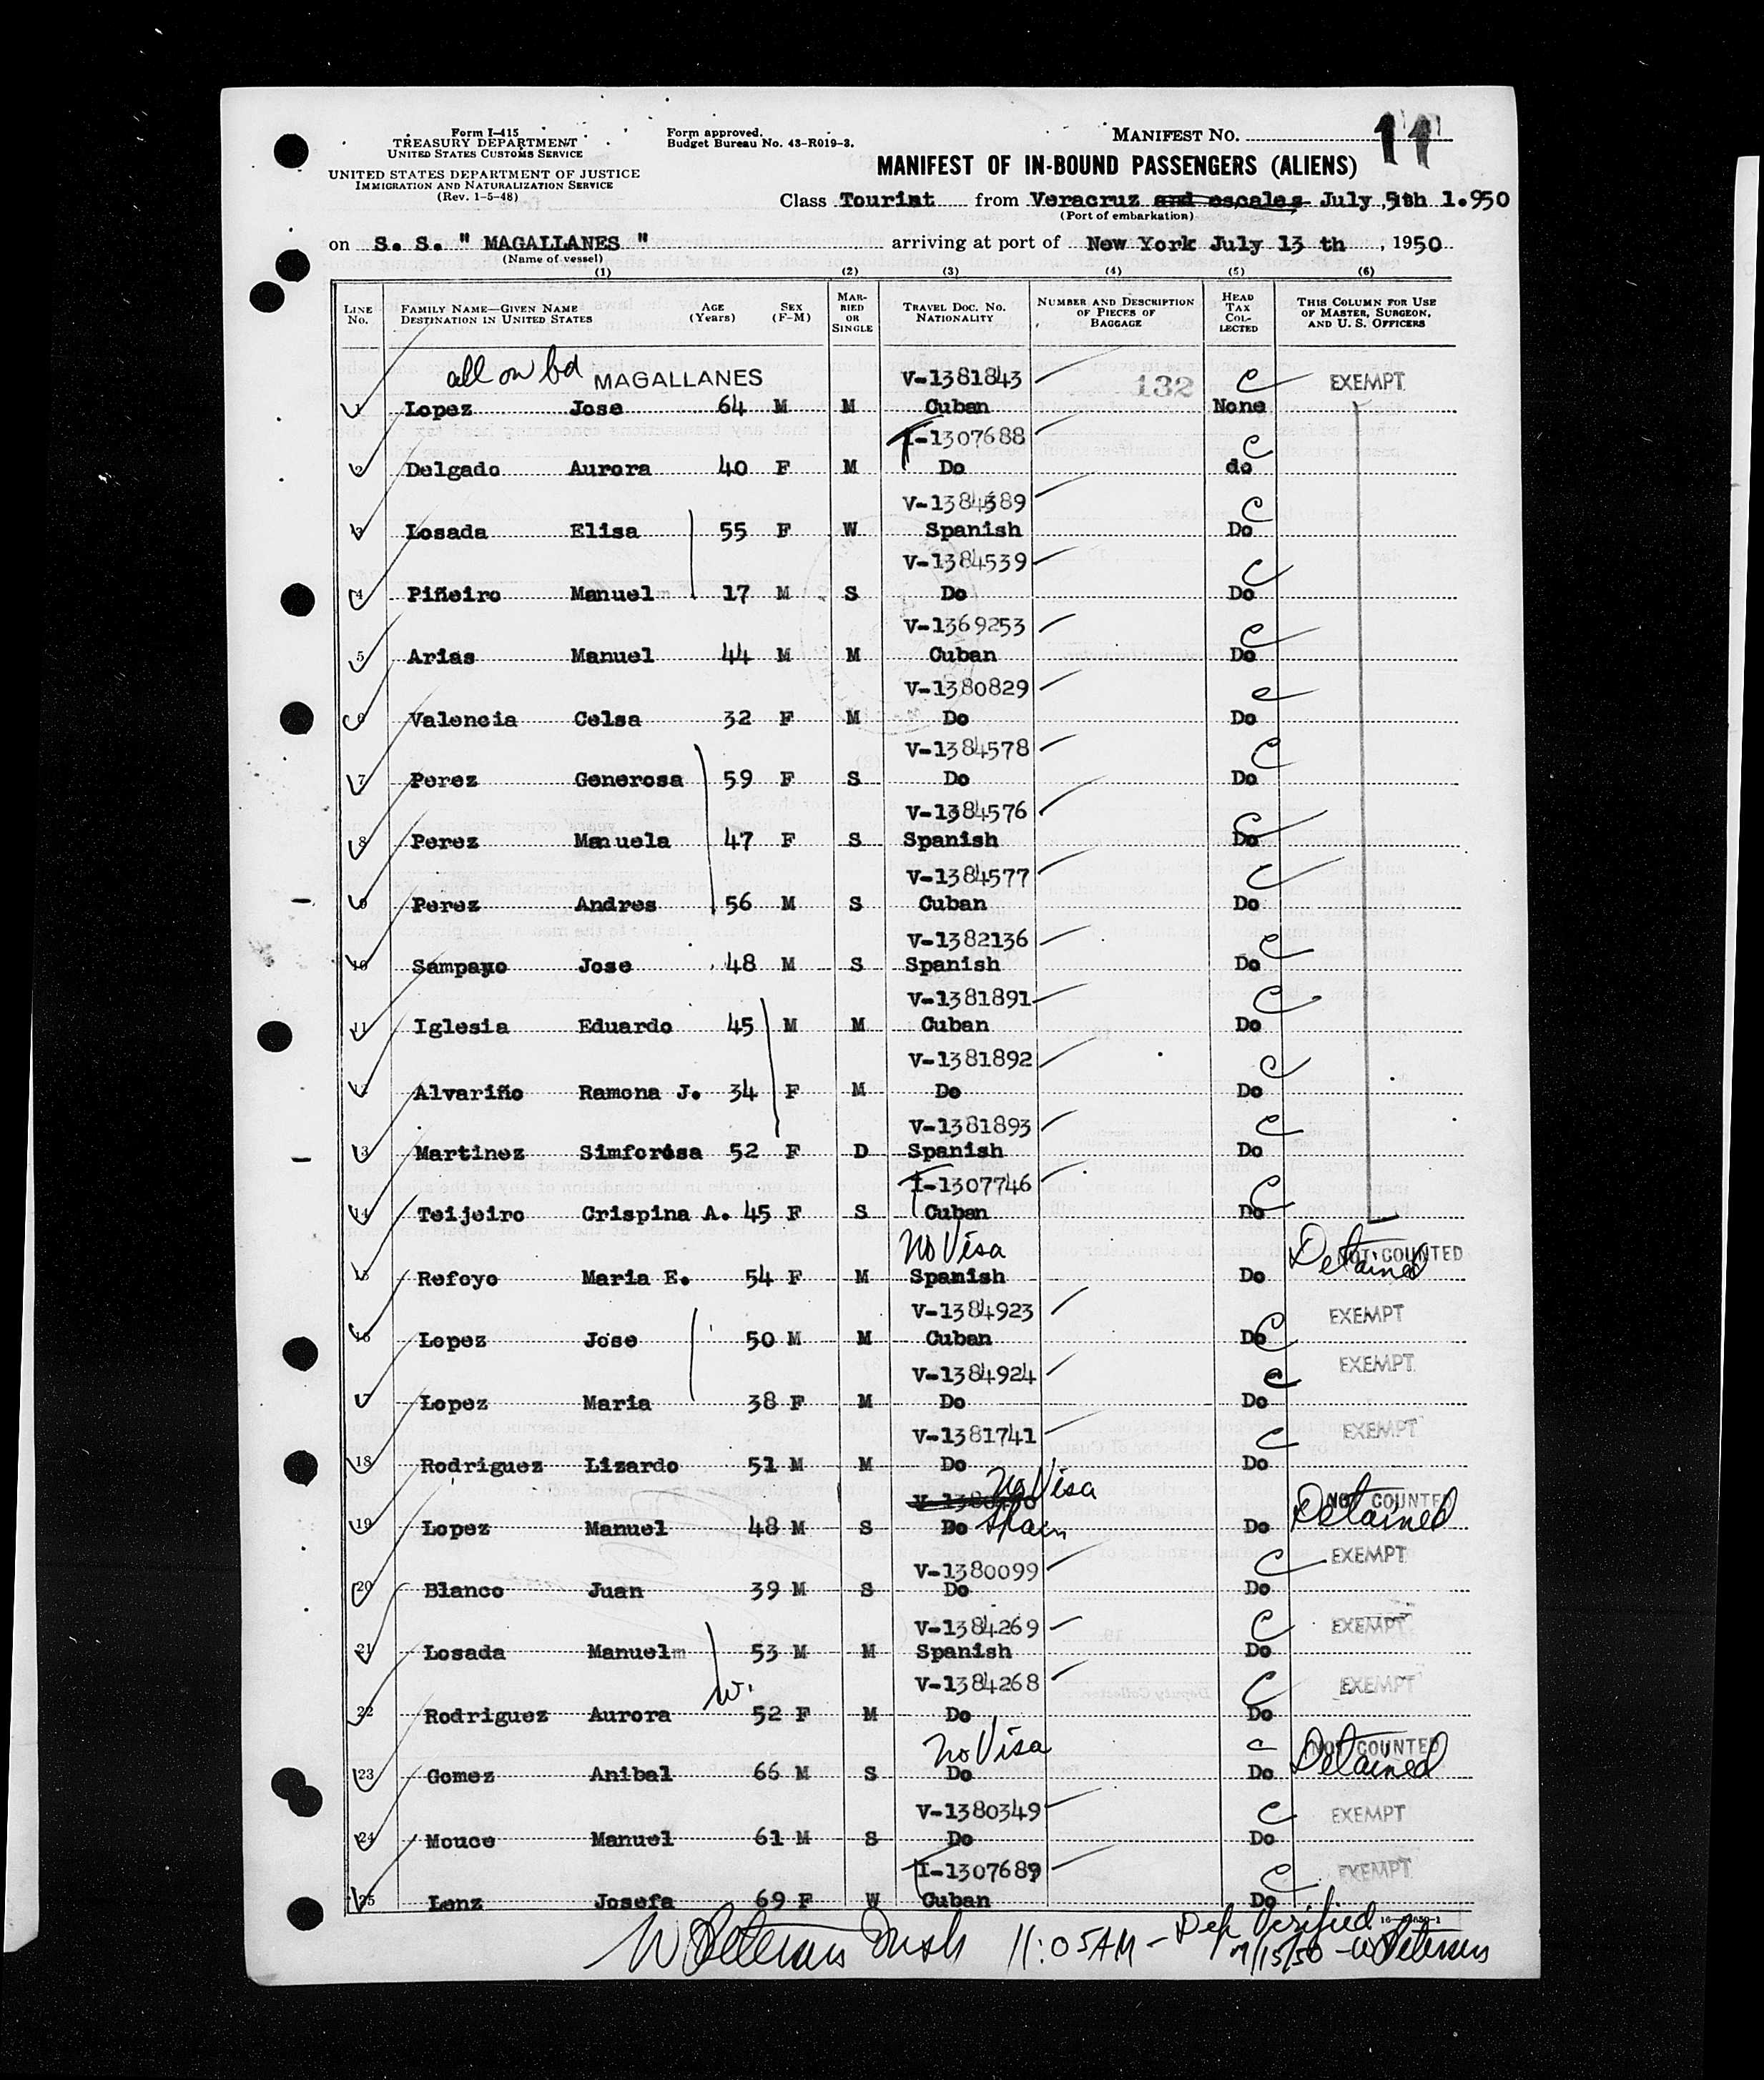 Form I-415
TREASURY DEPARTMENT
UNITED STATES CUSTOMS SERVICE
UNITED STATES DEPARTMENT OF JUSTICE
IMMIGRATION AND NATURALIZATION SERVICE
(Rev. 1-5-48)
Form approved.
Budget Bureau No. 43-R019-3.
MANIFEST NO. 11
MANIFEST OF IN-BOUND PASSENGERS (ALIENS)
Class Tourist from Veracruz and escales July 5th 1.950
(Port of embarkation)
on S. S. " MAGALLANES " arriving at port of New York July 13 th , 1950
(Name of vessel)
(1) (2) (3) (4) (5) (6)
LINE No. FAMILY NAME—GIVEN NAME DESTINATION IN UNITED STATES AGE (Years) SEX (F-M) MARRIED OR SINGLE TRAVEL DOC. NO. NATIONALITY NUMBER AND DESCRIPTION OF PIECES OF BAGGAGE HEAD TAX COLLECTED THIS COLUMN FOR USE OF MASTER, SURGEON, AND U. S. OFFICERS
all on bd MAGALLANES V-1381843 132 C EXEMPT
1 Lopez Jose 64 M M Cuban None
I-1307688 C
2 Delgado Aurora 40 F M Do do
V-1384589 C
3 Losada Elisa 55 F W Spanish Do
V-1384539 C
4 Piñeiro Manuel 17 M S Do Do
V-1369253 C
5 Arias Manuel 44 M M Cuban Do
V-1380829 C
6 Valencia Celsa 32 F M Do Do
V-1384578 C
7 Perez Generosa 59 F S Do Do
V-1384576 C
8 Perez Manuela 47 F S Spanish Do
V-1384577 C
9 Perez Andres 56 M S Cuban Do
V-1382136 C
10 Sampayo Jose 48 M S Spanish Do
V-1381891 C
11 Iglesia Eduardo 45 M M Cuban Do
V-1381892 C
12 Alvariño Ramona J. 34 F M Do Do
V-1381893 C
13 Martinez Simforosa 52 F D Spanish Do
I-1307746 C
14 Teijeiro Crispina A. 45 F S Cuban Do
No Visa Detained NOT COUNTED
15 Refoyo Maria E. 54 F M Spanish Do
V-1384923 C EXEMPT
16 Lopez Jose 50 M M Cuban Do
V-1384924 C EXEMPT
17 Lopez Maria 38 F M Do Do
V-1381741 C EXEMPT
18 Rodriguez Lizardo 51 M M Do Do
No Visa Detained NOT COUNTED
19 Lopez Manuel 48 M S Do Spain Do
V-1380099 C EXEMPT
20 Blanco Juan 39 M S Do Do
V-1384269 C EXEMPT
21 Losada Manuel 53 M M Spanish Do
W. V-1384268 C EXEMPT
22 Rodriguez Aurora 52 F M Do Do
No Visa C Detained NOT COUNTED
23 Gomez Anibal 66 M S Do Do
V-1380349 C EXEMPT
24 Mouce Manuel 61 M S Do Do
I-1307689 C EXEMPT
25 Lenz Josefa 69 F W Cuban Do
W Petersen Insp 11:05 AM - Dep Verified
7/15/50 - W Petersen